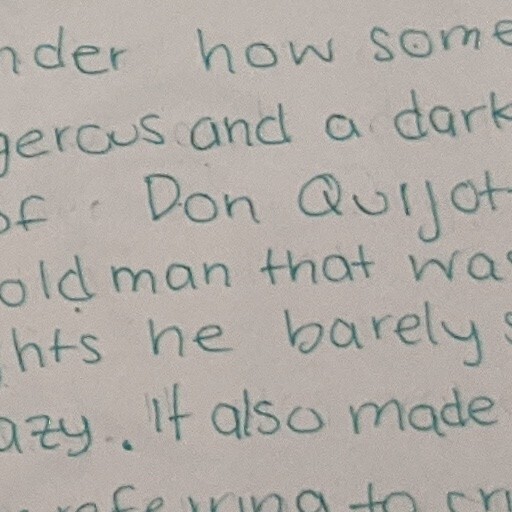 nder how some
gerous and a dark
of Don Quijot
old man that was
hts he barely s
azy. It also made
referring to